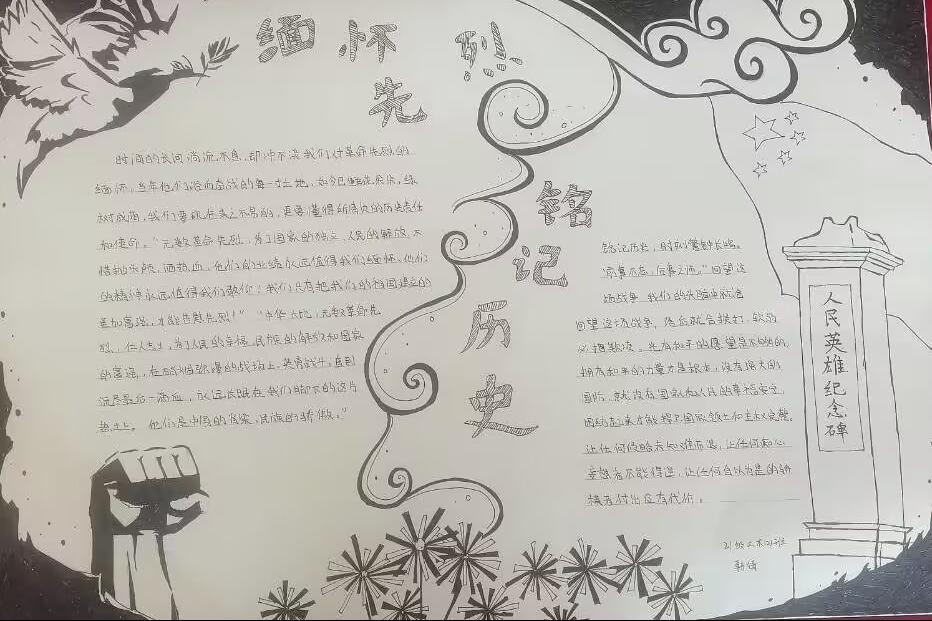 缅怀先烈
铭记历史
时间的长河滴流不息,却冲不淡我们对革命先烈的
缅怀,当年他们浴血奋战的每一寸土地,如今已鲜花
树成荫,我们要知生来之不易的,更要懂得所肩负的历史责任
和使命。“无数革命先烈,为了国家的独立、人民的解放,不
惜抛头颅,洒热血,他们的业绩永远值得我们缅怀,他们
的精神永远值得我们歌颂!我们只有把我们的祖国建设的
更加富强,才能告慰先烈!”“中华大地,无数革命先
烈,仁人志士,为了人民的幸福,民族的解放和国家
的富强,在硝烟弥漫的战场上,英勇战斗,直到
流尽最后一滴血,永远长眠在我们脚下的这片
热土上。他们是中国的 民族的骄傲。”
铭记历史,时刻警钟长鸣。
“前事不忘,后事之师。”回望这
场战争,我们的
回望这场战争,落后就会挨打,软弱
必遭欺凌。光有和平的愿望是不够的,
拥有和平的力量才是根本,没有强大的
国防,就没有国家和人民的幸福安宁。
团结起来才能捍卫国家领土和主权完整,
让任何侵略者知难而退,让任何
妄想者不能得逞,让任何自以为是的
横者付出应有代价。
人民英雄纪念碑
21级